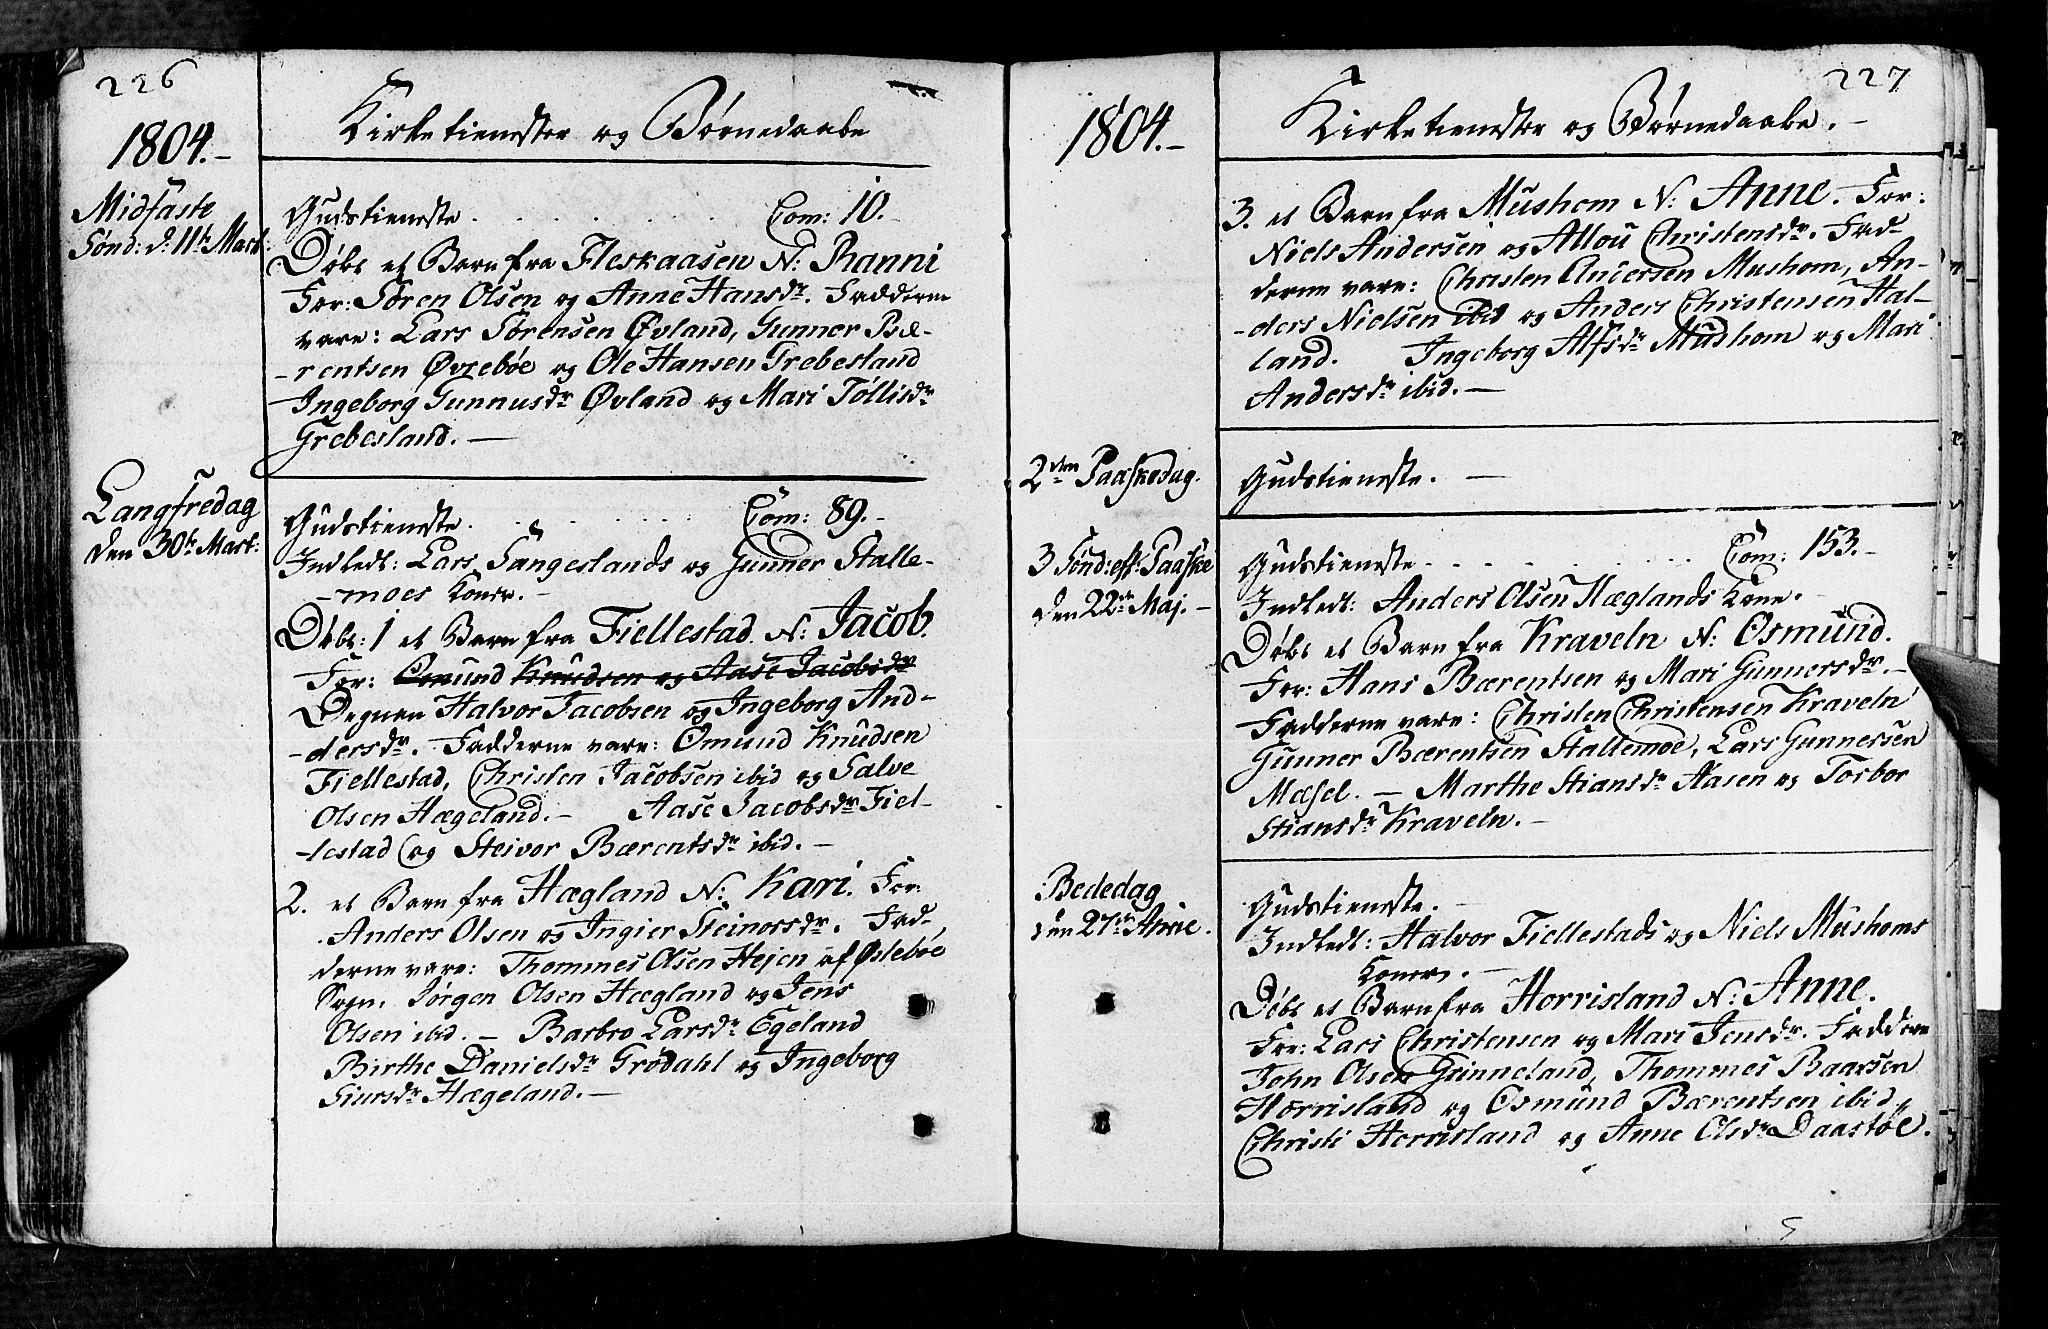 226
1804.-
Kirketienester og Børnedaabe
Midfaste
Sønd: d. 11te Mart:
Gudstieneste . . . . . . . Com: 10.-
Døbt et Barn fra Fleskaasen N: Ranni
For: Søren Olsen og Anne Hansdr. Fadderne
vare: Lars Sørensen Øvland, Gunner Bæ-
-rentsen Øvrebøe og Ole Hansen Grebesland
Ingeborg Gunnusdr Øvland og Mari Tøllisdr
Grebesland. —
Langfredag
den 30te Mart:
Gudstieneste . . . . . . . Com: 89.-
Indledt: Lars Fangeslands og Gunner Stalle-
-moes Koner. -
Døbt: 1 et Barn fra Fiellestad N: Jacob.
For: Omund Knudsen og Aase Jacobsdr
Degnen Halvor Jacobsen og Ingeborg And-
-dersdr. Fadderne vare: Omund Knudsen
Fiellestad, Christen Jacobsen ibid og Salve
Olsen Hægeland. - Aase Jacobsdr Fiel-
-lestad og Steivor Bærentsdr ibid. -
2. et Barn fra Hægland N: Kari. For:
Anders Olsen og Ingier Steinorsdr. Fad-
derne vare: Thommes Olsen Hejen af Øslebøe
Sogn. Jørgen Olsen Hægland og Jens
Olsen ibid. - Barbro Larsdr Egeland
Birthe Danielsdr Grødahl og Ingeborg
Siursdr Hægeland. —
227
1804.-
Kirketienester og Børnedaabe. -
3. et Barn fra Mushom N: Anne. For:
Niels Andersen og Allou Christensdr. Fad-
derne vare: Christen Andersen Mushom, An-
-ders Nielsen ibid og Anders Christensen Hal-
land. Ingeborg Alfsdr Mushom og Mari
Andersdr ibid. —
2den Paaskedag.
Gudstieneste. —
3 Sønd: eft: Paaske
den 22de Maj. -
Gudstieneste . . . . . . . Com: 153.-
Indledt: Anders Olsen Hæglands Kone. -
Døbt et Barn fra Kraveln N: Osmund.
For: Hans Bærentsen og Mari Gunnersdr. -
Fadderne vare: Christen Christensen Kraveln
Gunner Bærentsen Stallemoe, Lars Gunnersen
Mæsel. — Marthe Stiansdr Aasen og Torbor
Stiansdr Kraveln. -
Bededag
den 27de .
Gudstieneste. -
Indledt: Halvor Fiellestads og Niels Mushoms
Koner. -
Døbt et Barn fra Horrisland N: Anne.
For: Lars Christensen og Mari Jensdr. Faddere
John Olsen Grinneland, Thommes Baarsen
Horrisland og Osmund Bærentsen ibid,
Christi Horrisland og Anne Olsdr Daastøl.